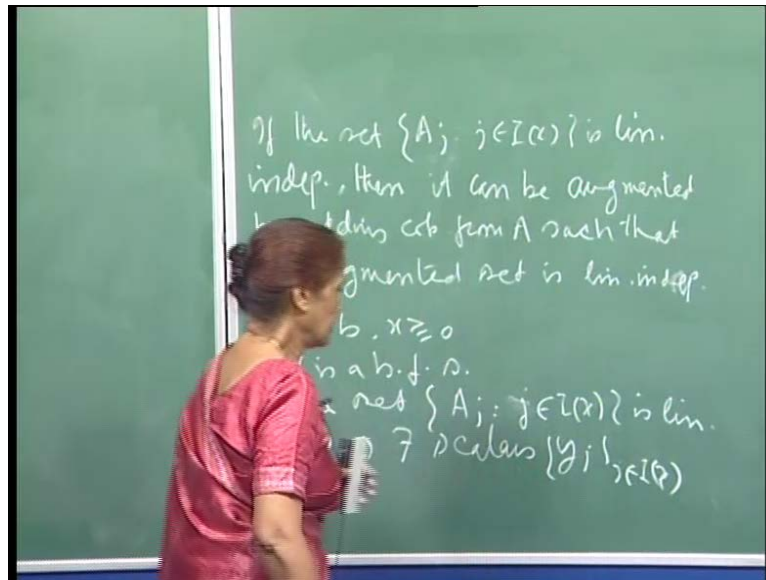 If the set {Aj : j∈I(x)} is lin.
indep., then it can be augmented
cols from A such that
gmented set is lin. indep.
b, x ≥ 0
is a b.f.s.
set {Aj : j∈I(x)} is lin.
∃ scalars {yj}j∈I(x)